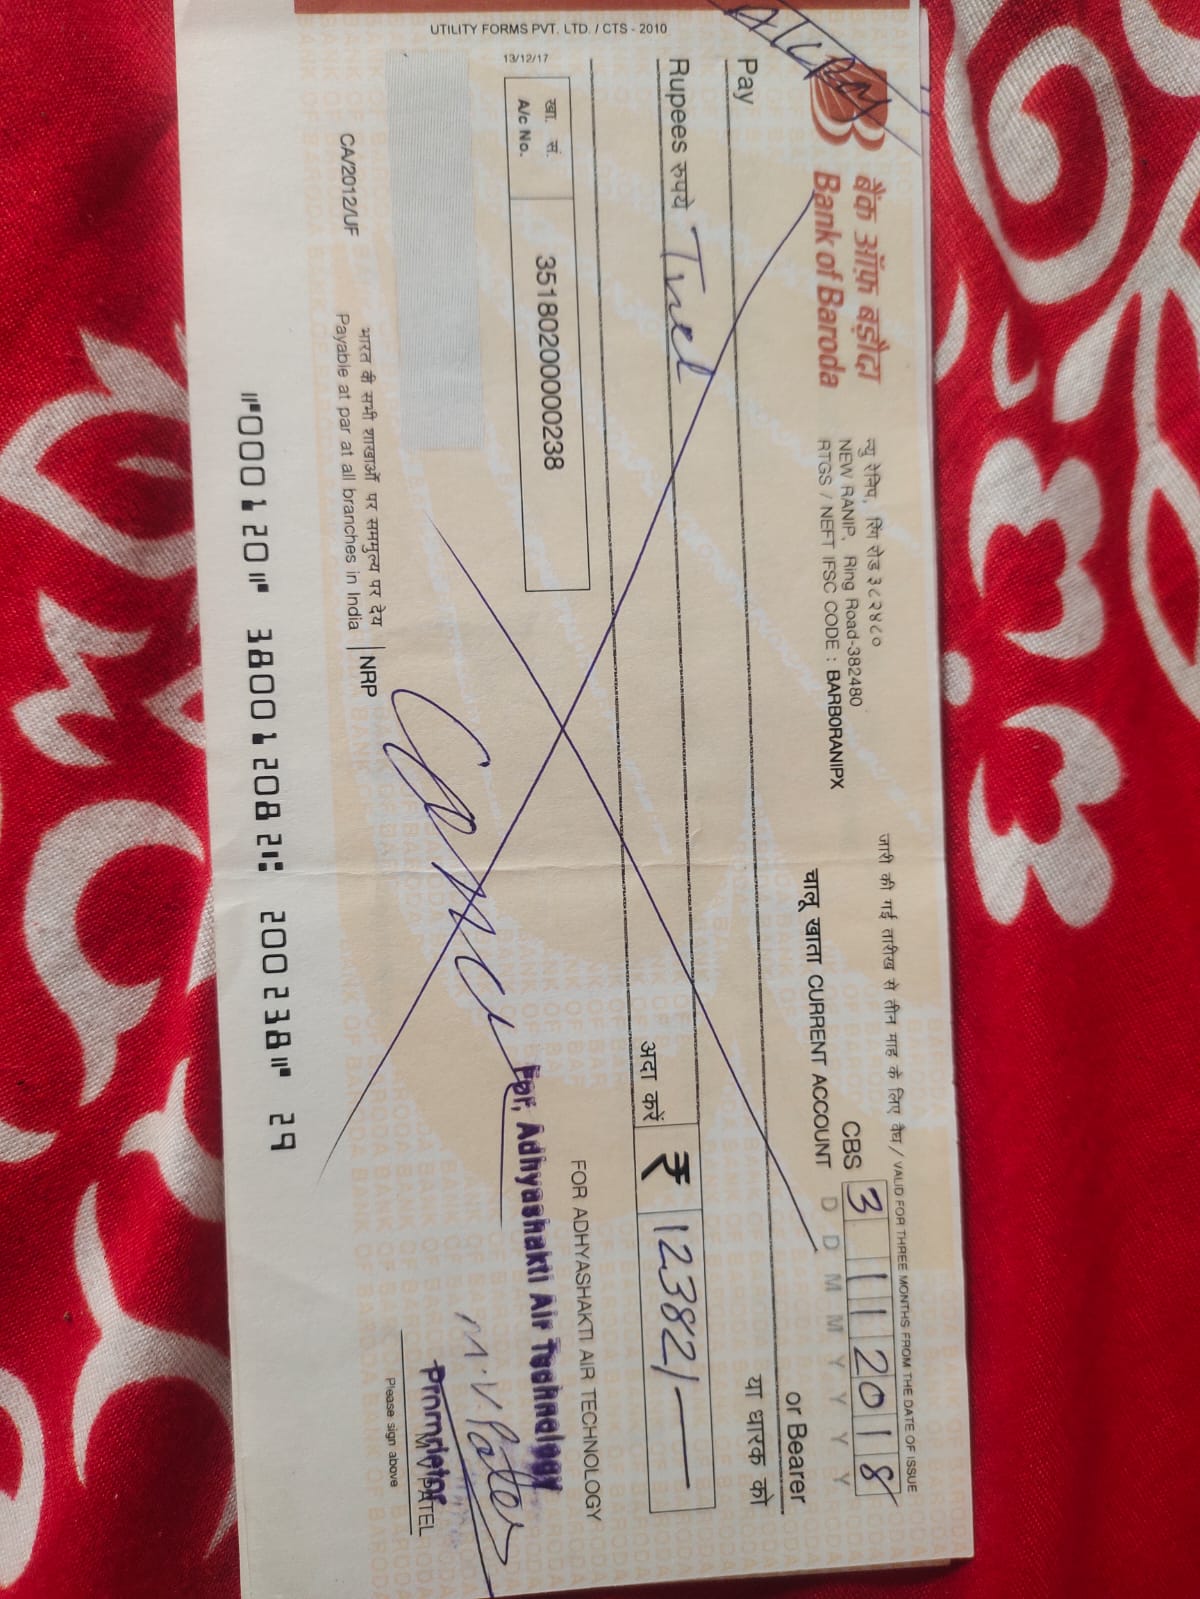 A/C Pay
बैंक ऑफ़ बड़ौदा
Bank of Baroda
न्यु रेनिप, रिंग रोड ३८२४८०
NEW RANIP, Ring Road-382480
RTGS / NEFT IFSC CODE : BARB0RANIPX
जारी की गई तारीख से तीन माह के लिए वैध / VALID FOR THREE MONTHS FROM THE DATE OF ISSUE
CBS 3 112018
D D M M Y Y Y Y
चालू खाता CURRENT ACCOUNT
Pay or Bearer
या धारक को
Rupees रुपये
अदा करें ₹ 12382/-
खा. सं.
A/c No. 35180200000238
FOR ADHYASHAKTI AIR TECHNOLOGY
For, Adhyashakti Air Technology
M.V.Patel
Proprietor
M V PATEL
Please sign above
UTILITY FORMS PVT. LTD. / CTS - 2010
13/12/17
CA/2012/UF
भारत की सभी शाखाओं पर सममुल्य पर देय
Payable at par at all branches in India
NRP
⑈000120⑈ 380012082⑆ 200238⑈ 29